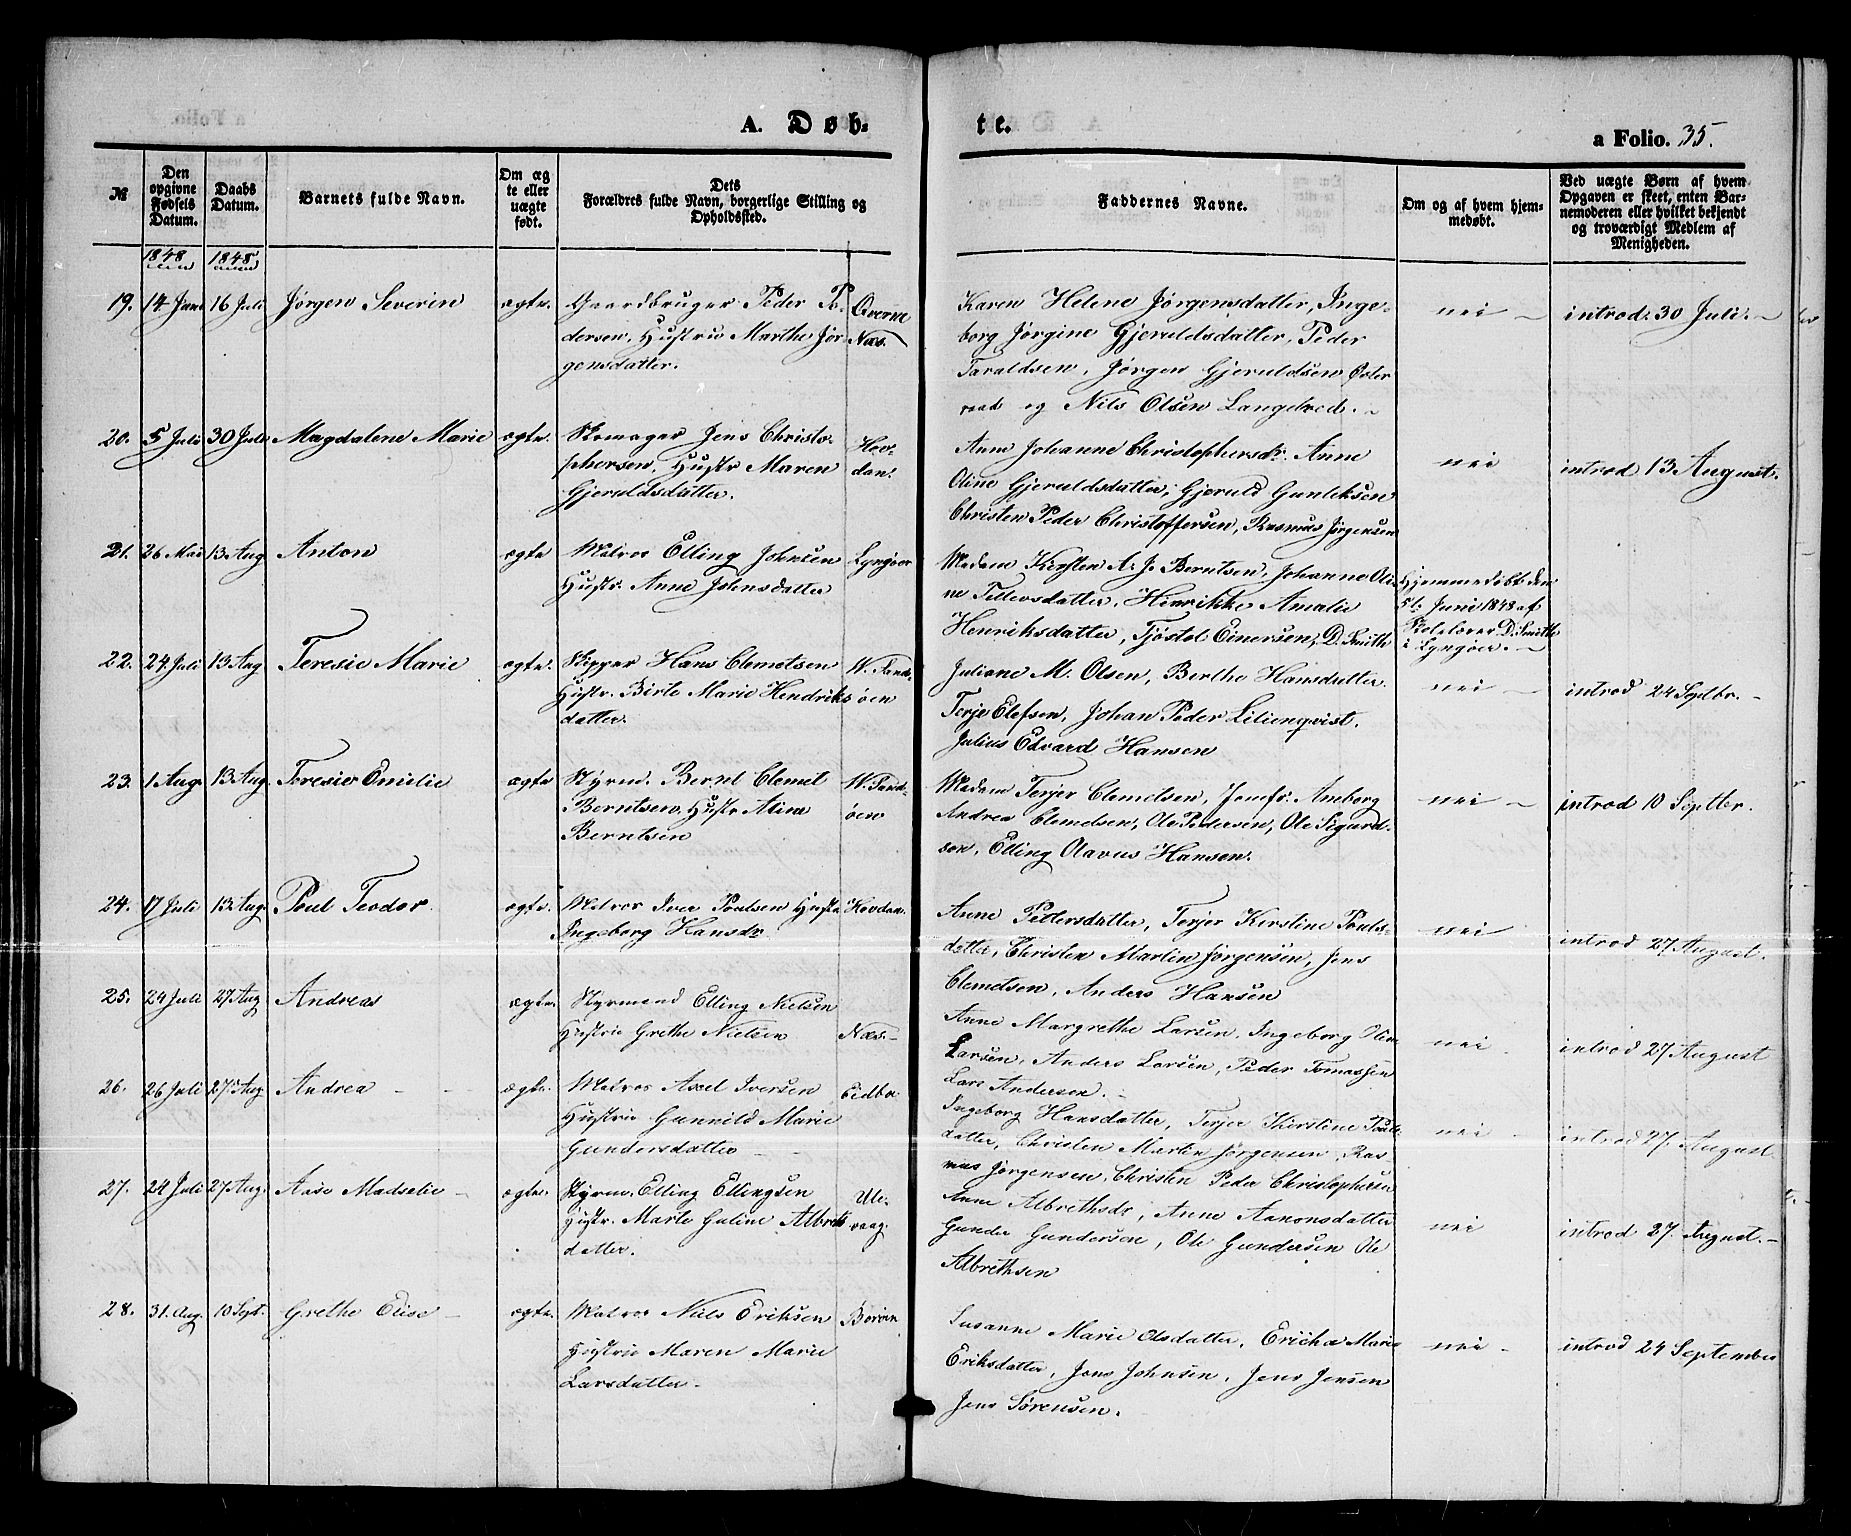 A. Døb-
te.
a Folio. 35.
№
Den opgivne Fødsels Datum.
Daabs Datum.
Barnets fulde Navn.
Om æg te eller uægte født.
Dets Forældres fulde Navn, borgerlige Stilling og Opholdssted.
Faddernes Navne.
Om og af hvem hjem- medøbt.
Ved uægte Børn af hvem Opgaven er skeet, enten Bar- nemoderen eller hvilket bekjendt og troværdigt Medlem af Menigheden.
1848 1848
19. 14 Juni 16 Juli Jørgen Severin ægte. Gaardbruger Peder Pe- Qverne
dersen, Hustrue Marthe Jør- Næs.
gensdatter.
Karen Helene Jørgensdatter, Inge-
borg Jørgine Gjeruldsdatter, Peder
Taraldsen, Jørgen Gjeruldsen Oster
raad og Nils Olsen Langelrød.
nei
introd: 30 Juli.
20. 5 Juli 30 Juli Magdalene Marie ægte. Skomager Jens Christo- Hov-
phersen, Hustr Maren dan.
Gjeruldsdatter.
Anne Johanne Christophersdr. Anne
Oline Gjeruldsdatter, Gjeruld Gunleksen
Christen Peder Christoffersen, Rasmus Jørgensen
nei
introd 13 August.
21. 26 Mai 13 Aug Anton ægte Matros Elling Johnsen Lyngøer
Hustr. Anne Johnsdatter
Madam Kirsten A. J. Berntsen, Johanne Oli-
ne Tellevsdatter, Hinrikke Amalie
Henriksdatter, Tjøstol Einersen, D. Smith
Hjemmedøbt den
5t. Juni 1848 af
Skolelærer D. Smith
i Lyngøer.
22. 24 Juli 13 Aug Teresie Marie ægte. Skipper Hans Clemetsen W. Sand-
Hustr. Birte Marie Hendriks øen
datter.
Juliane M. Olsen, Berthe Hansdatter.
Terje Elefsen, Johan Peder Lilienqvist.
Julius Edvard Hansen
nei
introd 24 Septbr.
23. 1 Aug. 13 Aug. Teresie Emilie ægte Styrm. Bernt Clemet W. Sand-
Berntsen, Hustr Aline øen
Berntsen
Madam Terjer Clemetsen, Jomfr. Aneborg
Andrea Clemetsen, Ole Pedersen, Ole Sigurd-
sen, Elling Olavus Hansen.
nei
introd 10 Septber.
24. 17 Juli 13 Aug Poul Teodor. ægte. Matros Iver Poulsen Hustr Hovdan.
Ingeborg Hansdr.
Anne Pettersdatter, Terjer Kirstine Pouls-
datter, Christen Martin Jørgensen, Jens
Clemetsen, Anders Hansen
nei
introd 27 August.
25. 24 Juli 27 Aug Andreas ægte. Styrmand Elling Nielsen
Hustrue Grethe Nielsen Næs.
Anne Margrethe Larsen, Ingeborg Oline
Larsen, Anders Larsen, Peder Tomassen
Lars Andersen.
nei
introd 27 August
26. 26 Juli 27 Aug Andrea ægte. Matros Axel Iversen Eidbo
Hustrue Gunnild Marie
Gundersdatter
Ingeborg Hansdatter, Terjer Kirstine Pouls-
datter, Christen Martin Jørgensen, Ras
mus Jørgensen, Christen Peder Christophersen
nei
introd 27. August
27. 24 Juli 27 Aug. Aase Madselie ægte. Styrm. Elling Ellingsen Ule-
Hustr. Marte Guline Albrets vaag
datter.
Anne Albrethsdr, Anne Aanonsdatter
Gunder Gundersen, Ole Gundersen Ole
Albrethsen
nei
introd 27. August.
28. 31. Aug. 10 Sept. Grethe Elise ægte. Matros Niels Eriksen Borøen
Hustrue Maren Marie
Larsdatter
Susanne Marie Olsdatter, Ericha Marie
Eriksdatter, Jens Johnsen, Jens Jensen
Jens Sørensen.
nei
introd 24 September